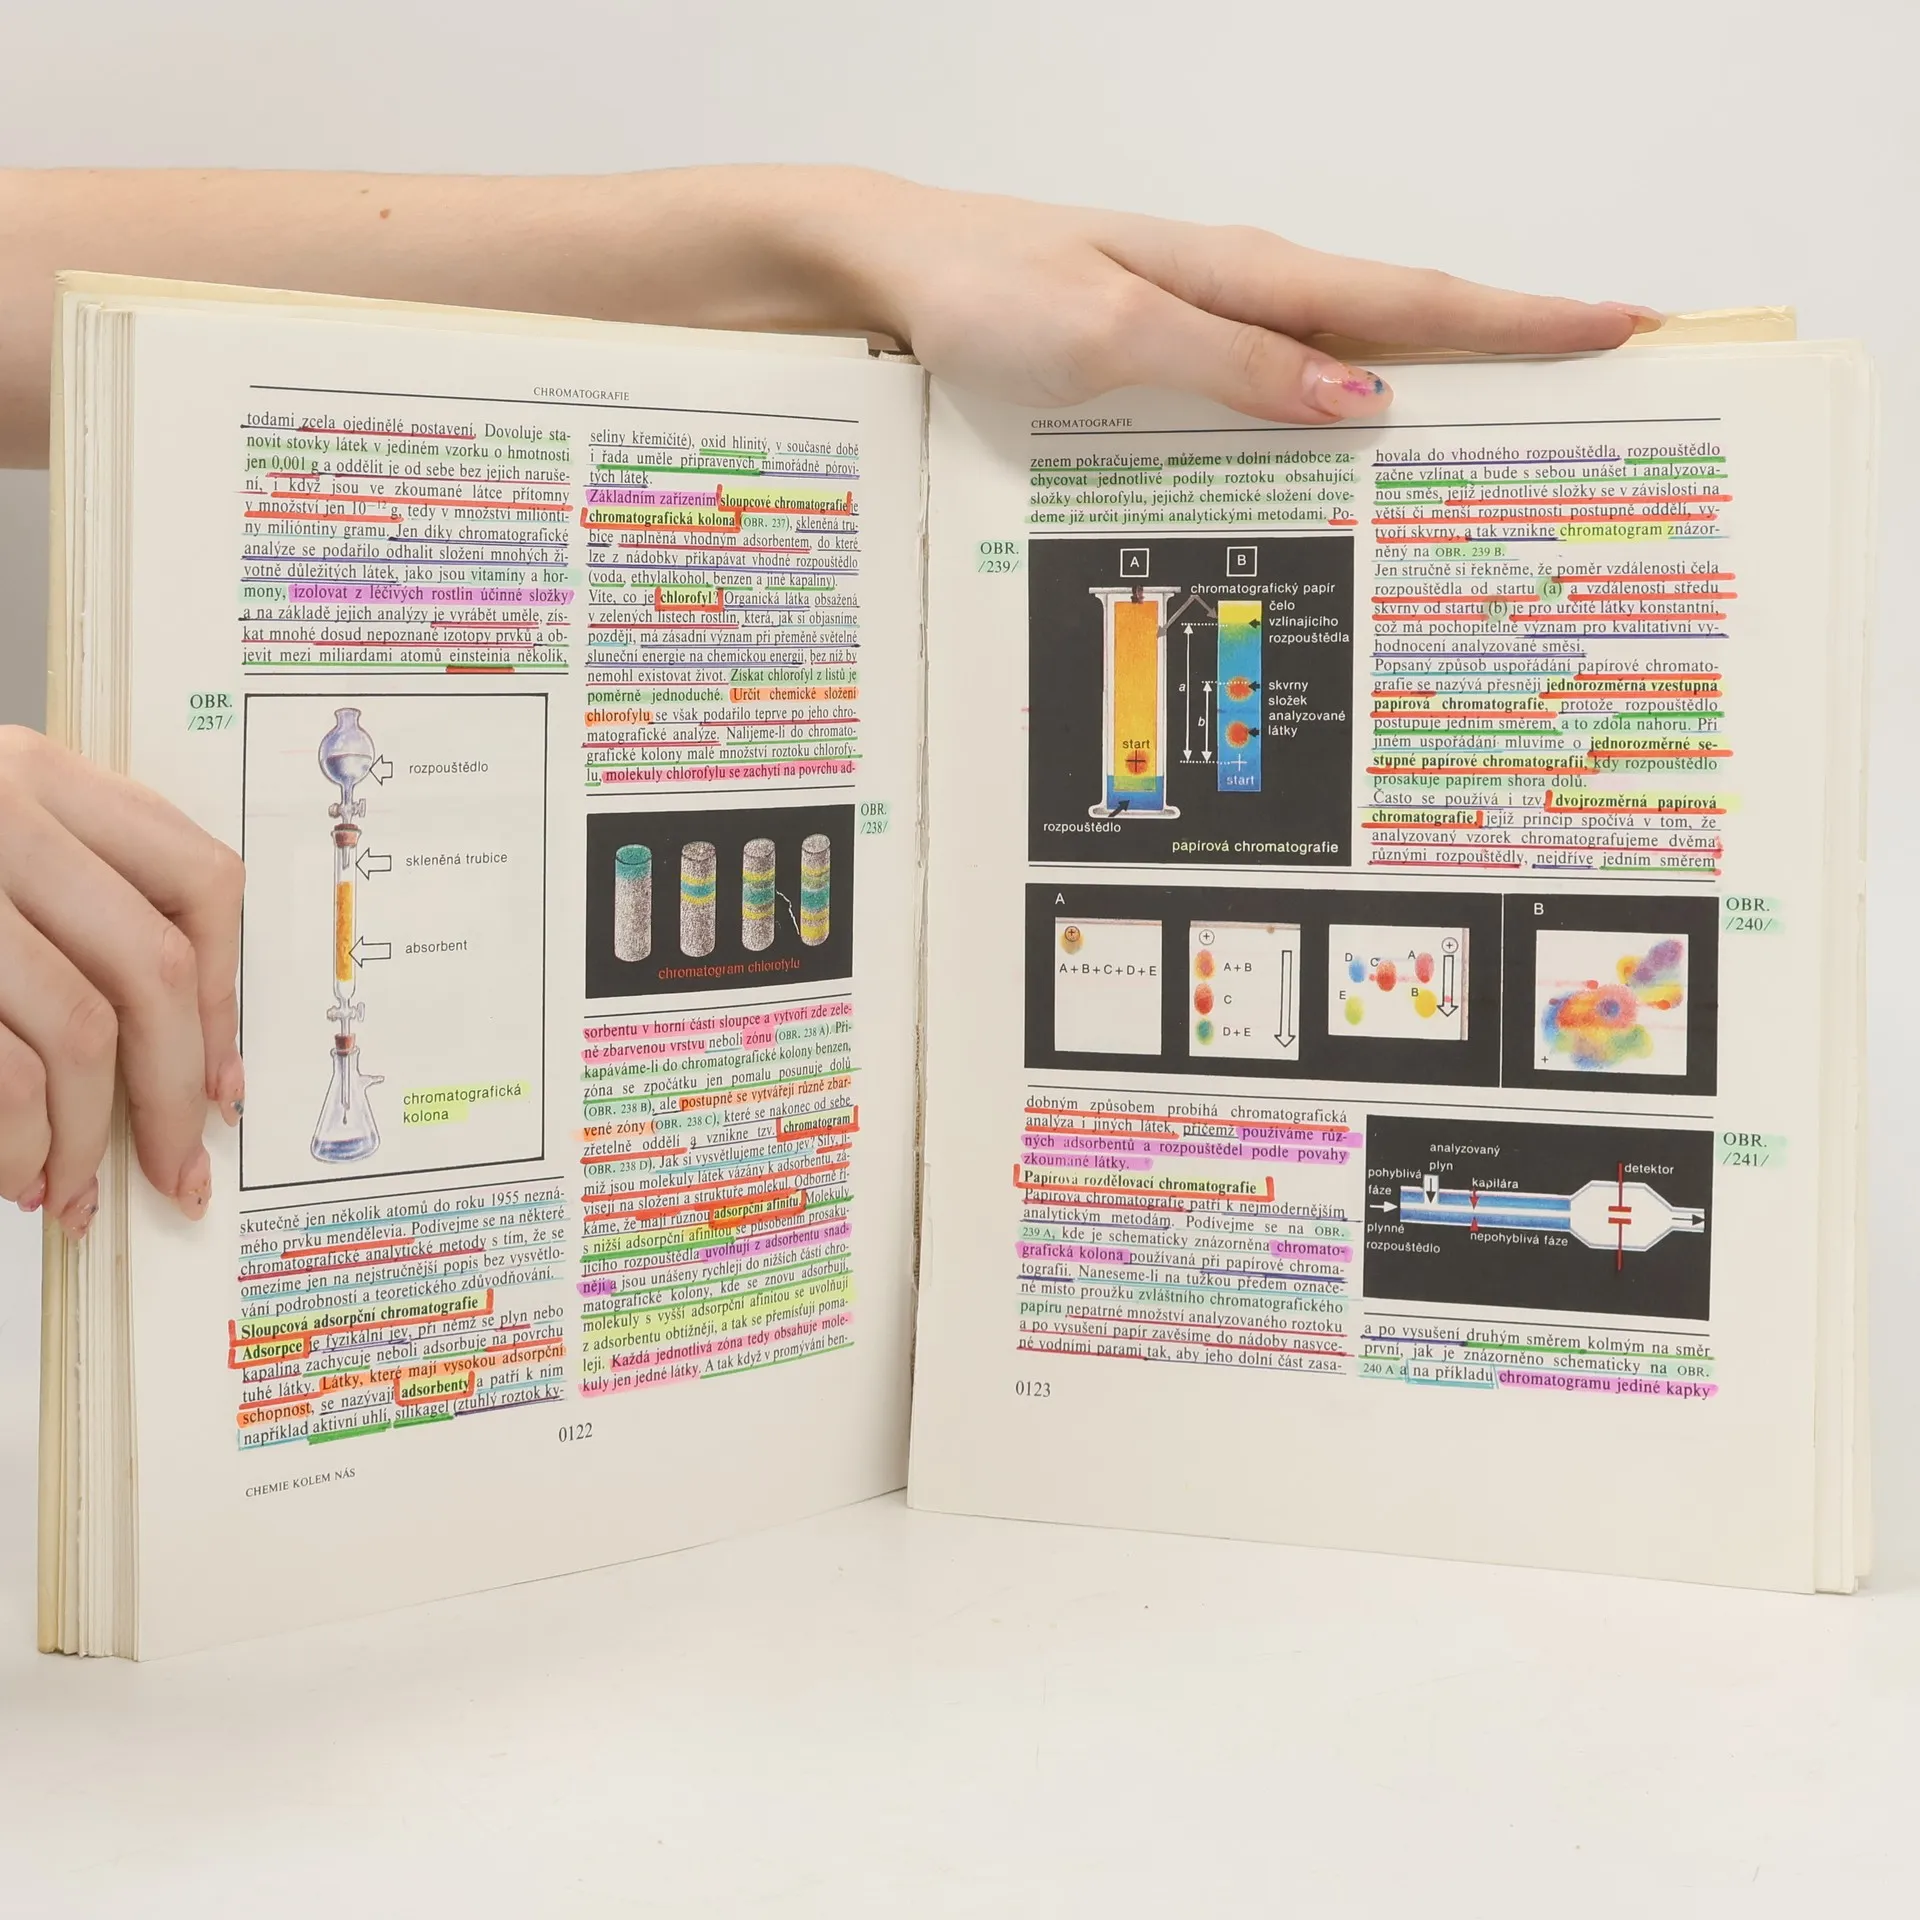 CHROMATOGRAFIE
todami zcela ojedinělé postavení. Dovoluje sta-
novit stovky látek v jediném vzorku o hmotnosti
jen 0,001 g a oddělit je od sebe bez jejich naruše-
ní, i když jsou ve zkoumané látce přítomny
v množství jen 10⁻¹² g, tedy v množství milionti-
ny milióntiny gramu. Jen díky chromatografické
analýze se podařilo odhalit složení mnohých ži-
votně důležitých látek, jako jsou vitamíny a hor-
mony, izolovat z léčivých rostlin účinné složky
a na základě jejich analýzy je vyrábět uměle, zís-
kat mnohé dosud nepoznané izotopy prvků a ob-
jevit mezi miliardami atomů einsteinia několik,
OBR.
/237/
rozpouštědlo
skleněná trubice
absorbent
chromatografická
kolona
skutečně jen několik atomů do roku 1955 nezná-
mého prvku mendělevia. Podívejme se na některé
chromatografické analytické metody s tím, že se
omezíme jen na nejstručnější popis bez vysvětlo-
vání podrobností a teoretického zdůvodňování.
Sloupcová adsorpční chromatografie
Adsorpce je fyzikální jev, při němž se plyn nebo
kapalina zachycuje neboli adsorbuje na povrchu
tuhé látky. Látky, které mají vysokou adsorpční
schopnost, se nazývají adsorbenty a patří k nim
například aktivní uhlí, silikagel (ztuhlý roztok ky-
seliny křemičité), oxid hlinitý, v současné době
i řada uměle připravených mimořádně pórovi-
tých látek.
Základním zařízením sloupcové chromatografie je
chromatografická kolona (OBR. 237), skleněná tru-
bice naplněná vhodným adsorbentem, do které
lze z nádobky přikapávat vhodné rozpouštědlo
(voda, ethylalkohol, benzen a jiné kapaliny).
Víte, co je chlorofyl? Organická látka obsažená
v zelených listech rostlin, která, jak si objasníme
později, má zásadní význam při přeměně světelné
sluneční energie na chemickou energii, bez níž by
nemohl existovat život. Získat chlorofyl z listů je
poměrně jednoduché. Určit chemické složení
chlorofylu se však podařilo teprve po jeho chro-
matografické analýze. Nalijeme-li do chromato-
grafické kolony malé množství roztoku chlorofy-
lu, molekuly chlorofylu se zachytí na povrchu ad-
OBR.
/238/
chromatogram chlorofylu
sorbentu v horní části sloupce a vytvoří zde zele-
ně zbarvenou vrstvu neboli zónu (OBR. 238 A). Při-
kapáváme-li do chromatografické kolony benzen,
zóna se zpočátku jen pomalu posunuje dolů
(OBR. 238 B), ale postupně se vytvářejí různě zbar-
vené zóny (OBR. 238 C), které se nakonec od sebe
zřetelně oddělí a vznikne tzv. chromatogram
(OBR. 238 D). Jak si vysvětlujeme tento jev? Síly, ji-
miž jsou molekuly látek vázány k adsorbentu, zá-
visejí na složení a struktuře molekul. Odborně ří-
káme, že mají různou adsorpční afinitu. Molekuly
s nižší adsorpční afinitou se působením prosaku-
jícího rozpouštědla uvolňují z adsorbentu snad-
něji a jsou unášeny rychleji do nižších částí chro-
matografické kolony, kde se znovu adsorbují,
molekuly s vyšší adsorpční afinitou se uvolňují
z adsorbentu obtížněji, a tak se přemísťují poma-
leji. Každá jednotlivá zóna tedy obsahuje mole-
kuly jen jedné látky. A tak když v promývání ben-
0122
CHEMIE KOLEM NÁS
CHROMATOGRAFIE
zenem pokračujeme, můžeme v dolní nádobce za-
chycovat jednotlivé podíly roztoku obsahující
složky chlorofylu, jejichž chemické složení dove-
deme již určit jinými analytickými metodami. Po-
OBR.
/239/
A
B
chromatografický papír
čelo
vzlínajícího
rozpouštědla
a
b
skvrny
složek
analyzované
látky
start
start
rozpouštědlo
papírová chromatografie
A
A+B+C+D+E
A+B
C
D+E
D
C
A
E
B
B
OBR.
/240/
dobným způsobem probíhá chromatografická
analýza i jiných látek, přičemž používáme růz-
ných adsorbentů a rozpouštědel podle povahy
zkoumané látky.
Papírová rozdělovací chromatografie
Papírová chromatografie patří k nejmodernějším
analytickým metodám. Podívejme se na OBR.
239 A, kde je schematicky znázorněna chromato-
grafická kolona používaná při papírové chroma-
tografii. Naneseme-li na tužkou předem označe-
né místo proužku zvláštního chromatografického
papíru nepatrné množství analyzovaného roztoku
a po vysušení papír zavěsíme do nádoby nasyce-
né vodními parami tak, aby jeho dolní část zasa-
0123
hovala do vhodného rozpouštědla, rozpouštědlo
začne vzlínat a bude s sebou unášet i analyzova-
nou směs, jejíž jednotlivé složky se v závislosti na
větší či menší rozpustnosti postupně oddělí, vy-
tvoří skvrny, a tak vznikne chromatogram znázor-
něný na OBR. 239 B.
Jen stručně si řekněme, že poměr vzdálenosti čela
rozpouštědla od startu (a) a vzdálenosti středu
skvrny od startu (b) je pro určité látky konstantní,
což má pochopitelně význam pro kvalitativní vy-
hodnocení analyzované směsi.
Popsaný způsob uspořádání papírové chromato-
grafie se nazývá přesněji jednorozměrná vzestupná
papírová chromatografie, protože rozpouštědlo
postupuje jedním směrem, a to zdola nahoru. Při
jiném uspořádání mluvíme o jednorozměrné se-
stupné papírové chromatografii, kdy rozpouštědlo
prosakuje papírem shora dolů.
Často se používá i tzv. dvojrozměrná papírová
chromatografie, jejíž princip spočívá v tom, že
analyzovaný vzorek chromatografujeme dvěma
různými rozpouštědly, nejdříve jedním směrem
OBR.
/241/
analyzovaný
plyn
pohyblivá
fáze
plynné
rozpouštědlo
kapilára
nepohyblivá fáze
detektor
a po vysušení druhým směrem kolmým na směr
první, jak je znázorněno schematicky na OBR.
240 A a na příkladu chromatogramu jediné kapky